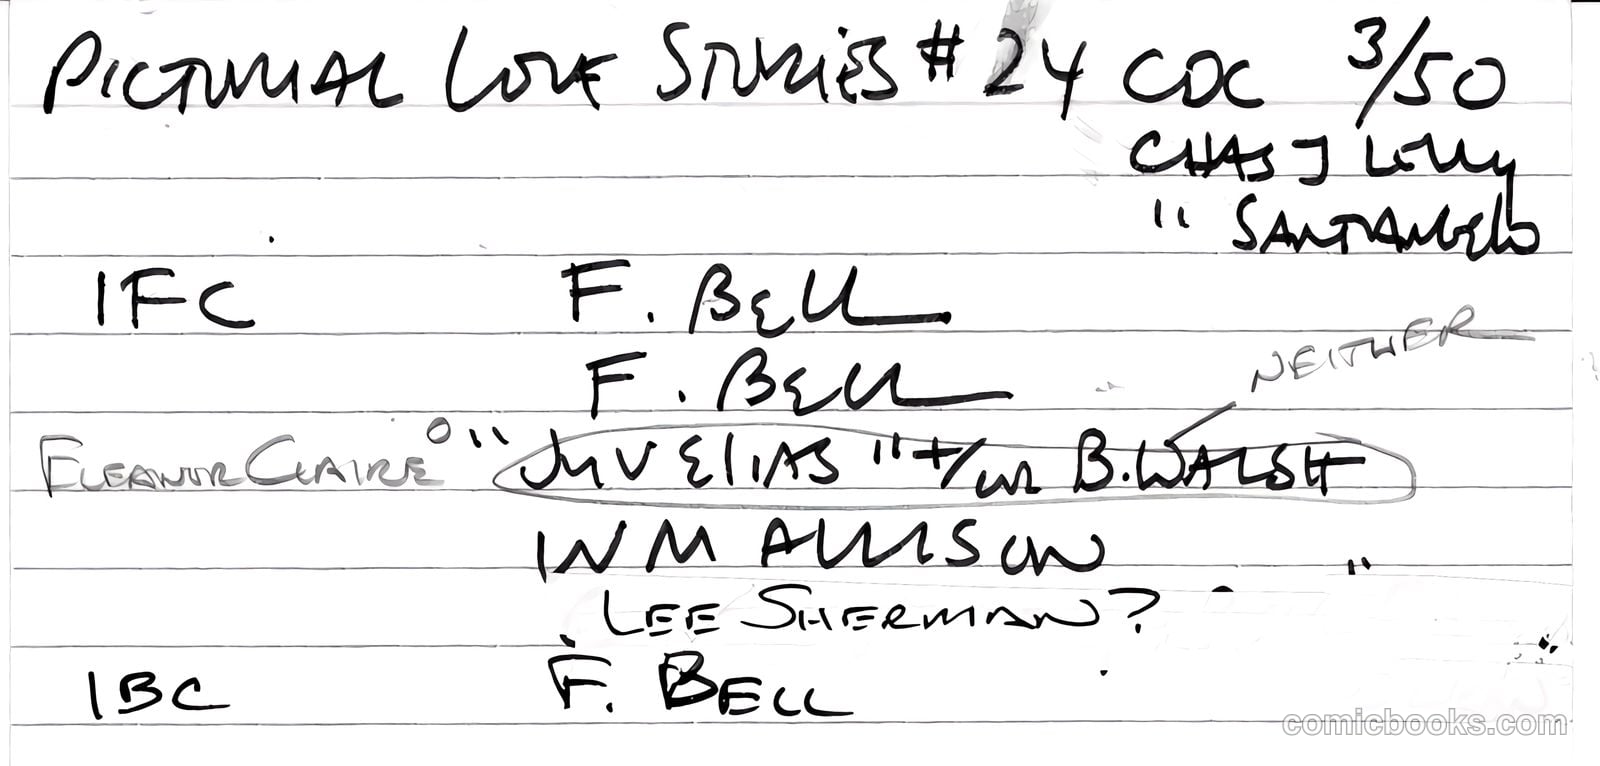 PICTORIAL LOVE STORIES # 24 CDC 3/50
CHAS J LEVY
" SANTANGELO
IFC F. BELL
NEITHER
F. BELL
ELEANOR CLAIRE " JNV ELIAS " +/OR B. WALSH
WM ALLISON "
LEE SHERMAN?
IBC F. BELL
comicbooks.com